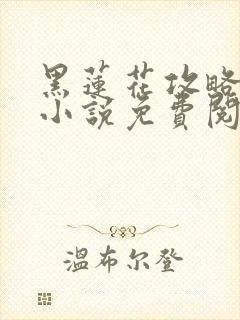 黑蓮花攻略
小說免費閱
溫布尔登